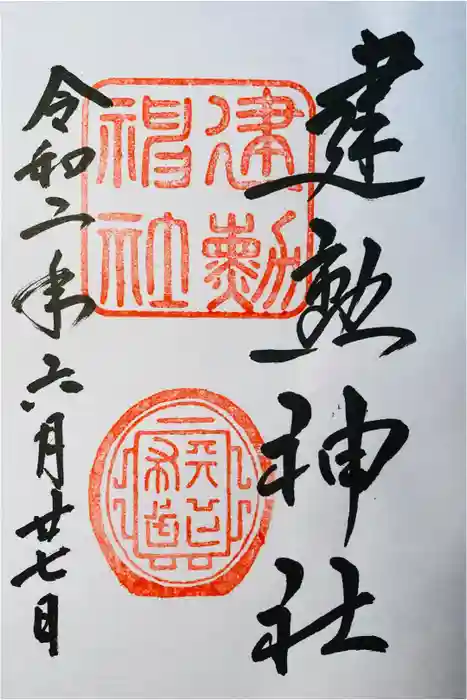 建勲神社
建勲
神社
令和二年六月廿七日